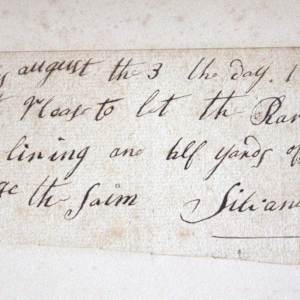 august the 3 the day.
Please to let the
lining and half yards of
the Saim Silvan